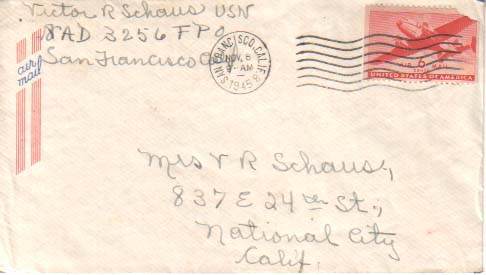 Victor R Schaus USN
NAD 3256 FPO
San Francisco Ca
air
mail
SAN FRANCISCO, CALIF.
NOV 6
AM
1945
6¢
AIR MAIL
UNITED STATES OF AMERICA
Mrs V R Schaus,
837 E 24th St.,
National City
Calif.